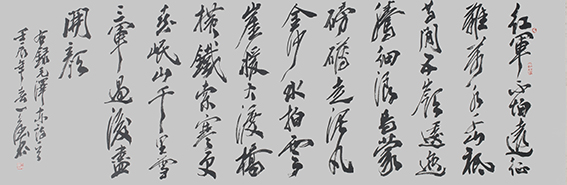 紅軍不怕遠征
難萬水千山祇
等閒五嶺逶迤
騰細浪烏蒙
磅礴走泥丸
金沙水拍雲
崖暖大渡橋
橫鐵索寒更
喜岷山千里雪
三軍過後盡
開顏
右錄毛澤東詩一首
壬辰年春